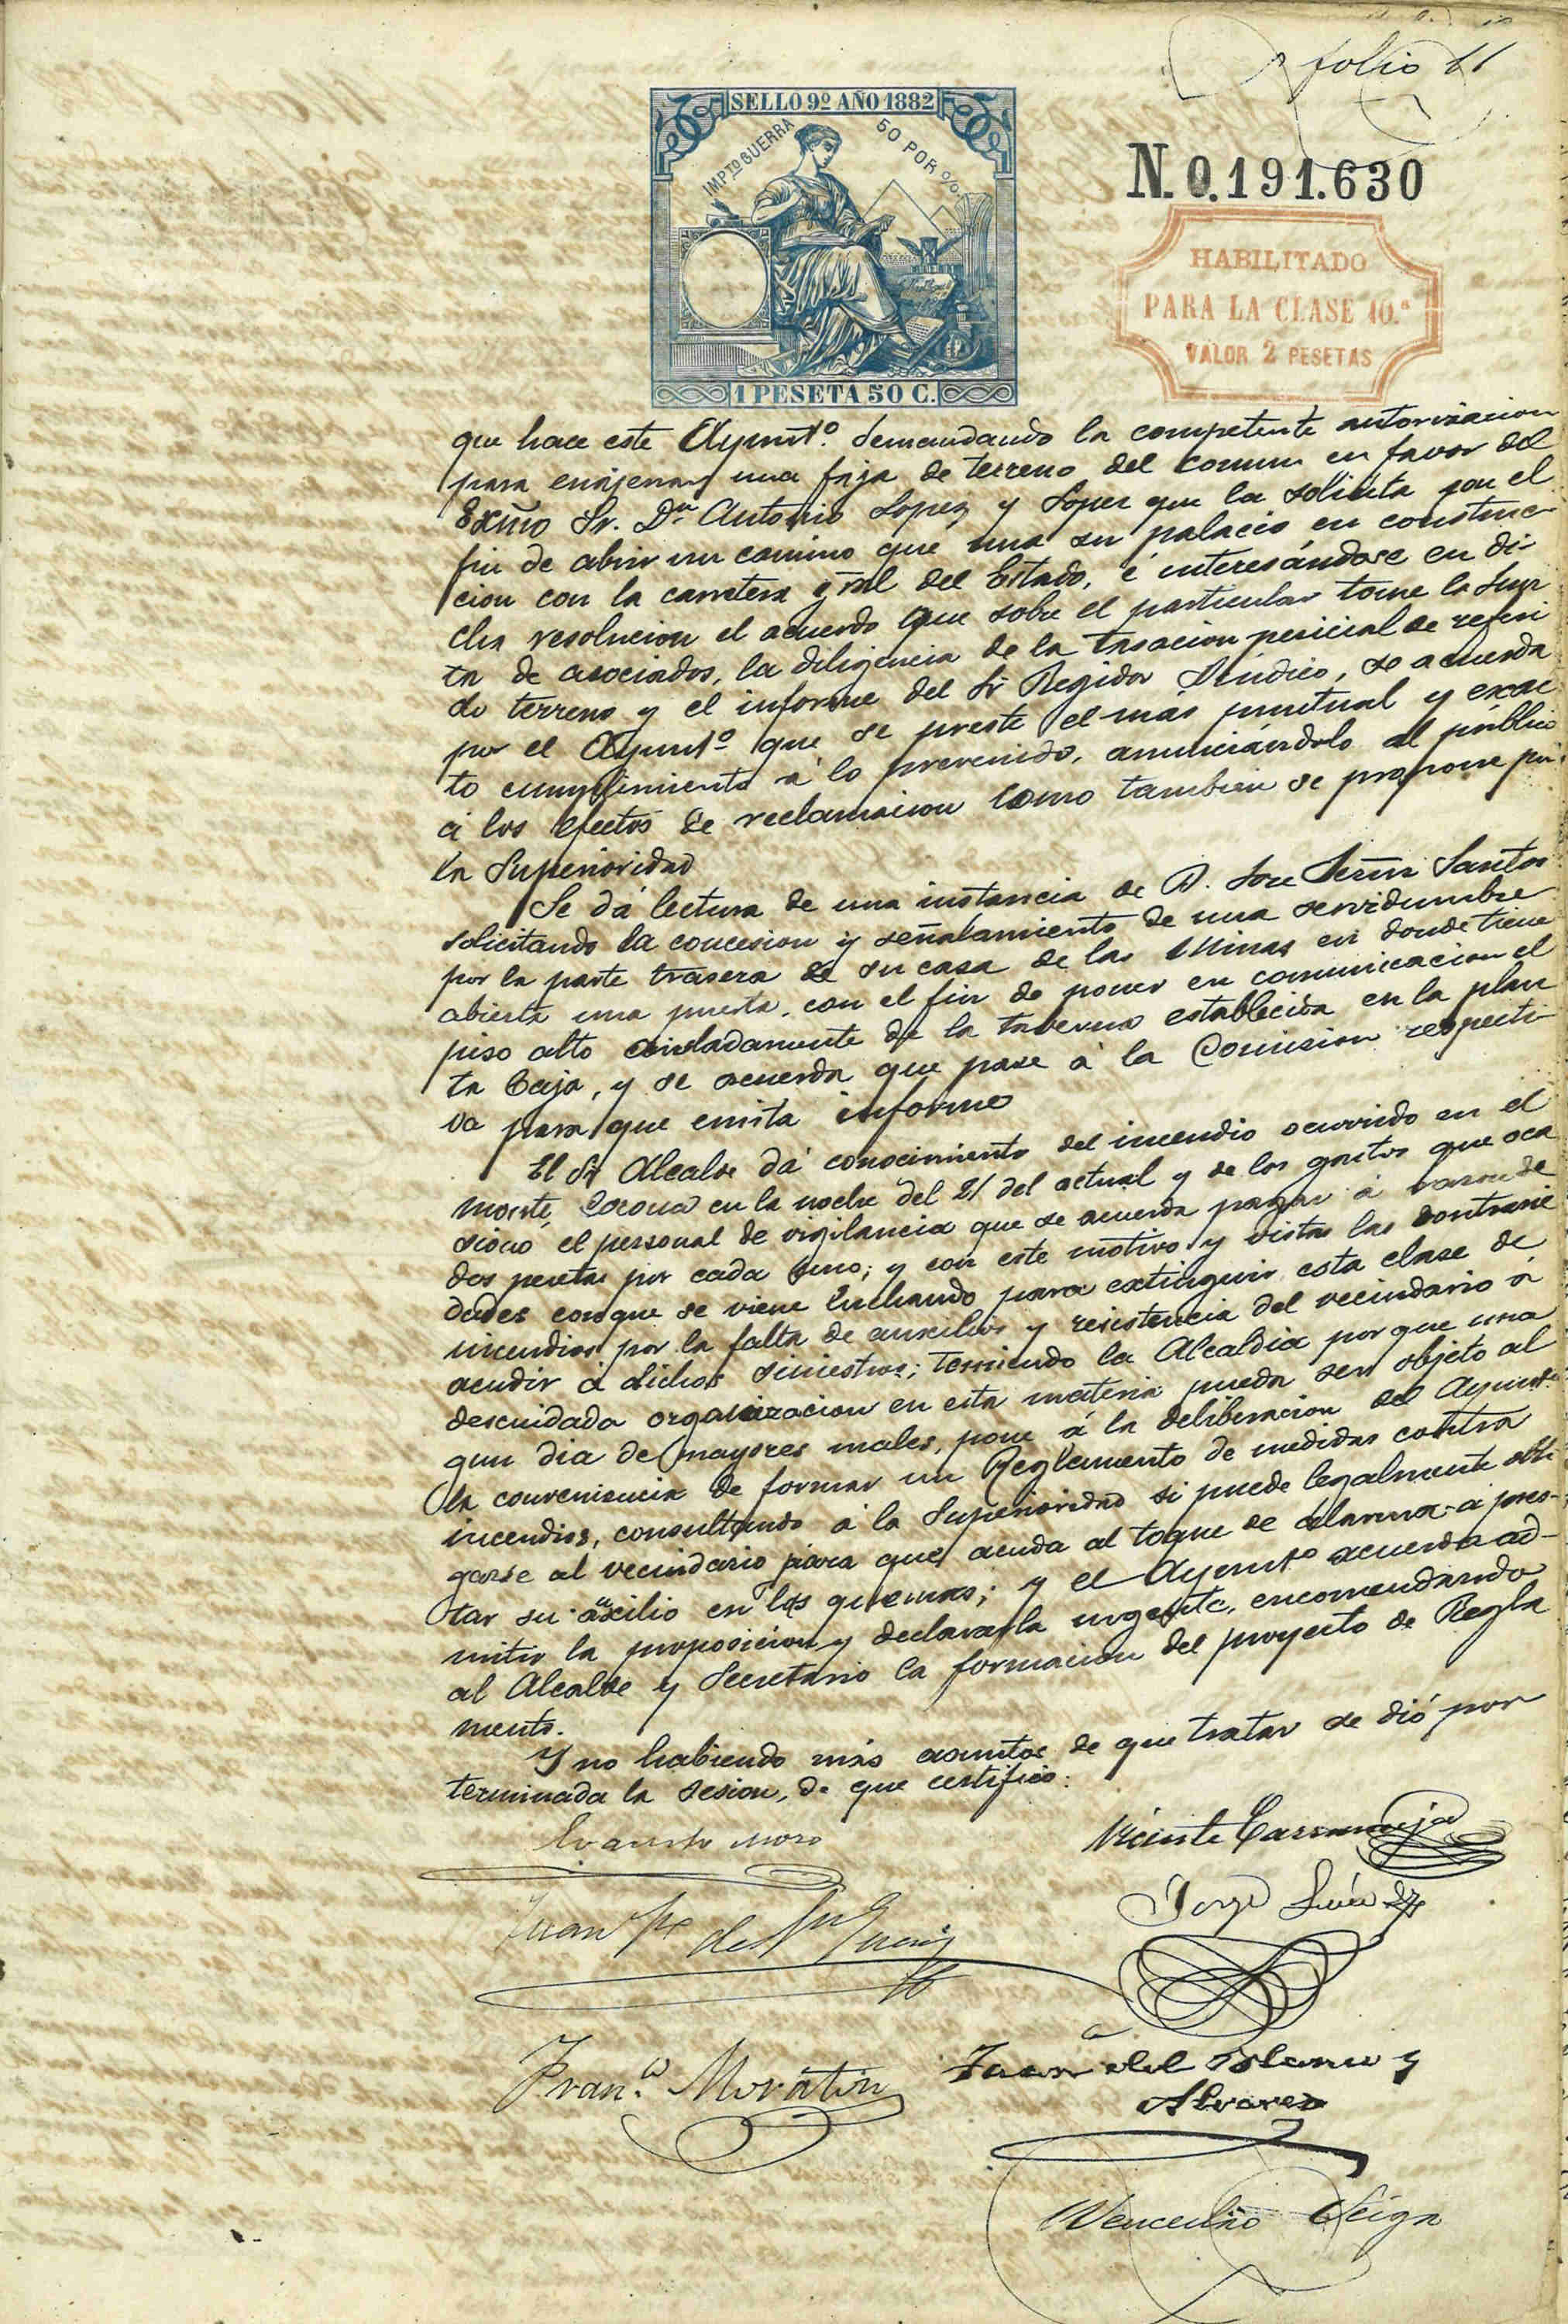 folio 11
SELLO 9º AÑO 1882
IMPTO GUERRA
50 POR %.
N. 0.191.630
HABILITADO
PARA LA CLASE 10.ª
VALOR 2 PESETAS
1 PESETA 50 C.
que hace este Ayuntº. demandando la competente autorizacion
para enajenar una faja de terreno del comun en favor del
Exmo Sr. Dn Antonio Lopez y Lopez que la solicita con el
fin de abrir un camino que una su palacio en construc-
cion con la carretera gral del Estado, é interesándose en di-
cha resolucion el acuerdo que sobre el particular tome la Jun
ta de asociados, la diligencia de la tasacion pericial de referi
do terreno y el informe del Sr Regidor Síndico, se acuerda
por el Ayuntº que se preste el más puntual y exac
to cumplimiento á lo prevenido, anunciándolo al público
á los efectos de reclamacion como tambien se propone por
la Superioridad
Se dá lectura de una instancia de D. Jose Santos
solicitando la concesion y señalamiento de una servidumbre
por la parte trasera de su casa de las Minas en donde tiene
abierta una puerta, con el fin de poner en comunicacion el
piso alto aisladamente de la taberna establecida en la plan
ta baja, y se acuerda que pase á la Comision respecti-
va para que emita informe
El Sr Alcalde dá conocimiento del incendio ocurrido en el
monte Corona en la noche del 21 del actual y de los gastos que oca
sionó el personal de vigilancia que se acuerda pagar á razon de
dos pesetas por cada uno; y con este motivo y vistas las contrarie
dades con que se viene luchando para extinguir esta clase de
incendios por la falta de auxilios y resistencia del vecindario á
acudir á dichos siniestros; temiendo la Alcaldia porque una
descuidada organizacion en esta materia pueda ser objeto al
gun dia de mayores males, pone á la deliberacion del Ayuntº
la conveniencia de formar un Reglamento de medidas contra
incendios, consultando á la Superioridad si puede legalmente obli
garse al vecindario para que acuda al toque de alarma á pres-
tar su auxilio en las quemas; y el Ayuntº acuerda ad-
mitir la proposicion y declararla urgente, encomendando
al Alcalde y Secretario la formacion del proyecto de Regla
mento.
Y no habiendo más asuntos de que tratar se dió por
terminada la sesion, de que certifico:
Evaristo Moro
Vicente Carranceja
Jorge
Juan de
Franco. Moratin
Juan del y
Alvarez
Wenceslao Veiga